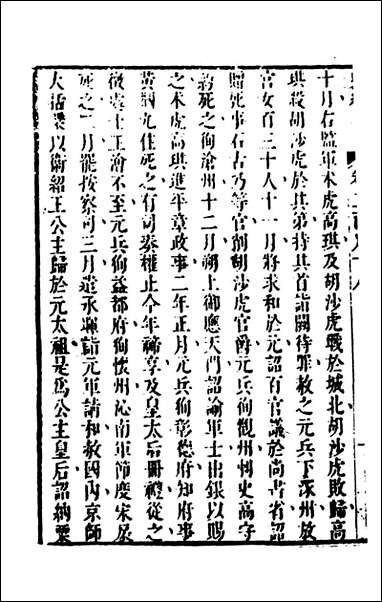 十月右監軍木虎高琪及胡沙虎戰於城北胡沙虎敗歸高
琪殺胡沙虎於其第持其首詣闕待罪赦之元兵下涿州放
宮女百三十人十一月將求和於元詔百官議於尚書省詔
贈死事石古乃等官削胡沙虎官爵元兵徇觀州刺史高守
約死之徇滄州十二月朔上御應天門詔諭軍士出銀以賜
之木虎高琪進平章政事二年正月元兵徇彰德府知府事
黃摑九住死之有司奏權止今年禘享及皇太后冊禮從之
徵處士王澮不至元兵徇益都府徇懷州沁南軍節度宋扆
死之二月罷按察司三月遣承暉詣元軍請和赦國內京師
大括粟以衛紹王公主歸於元太祖是爲公主皇后詔納粟